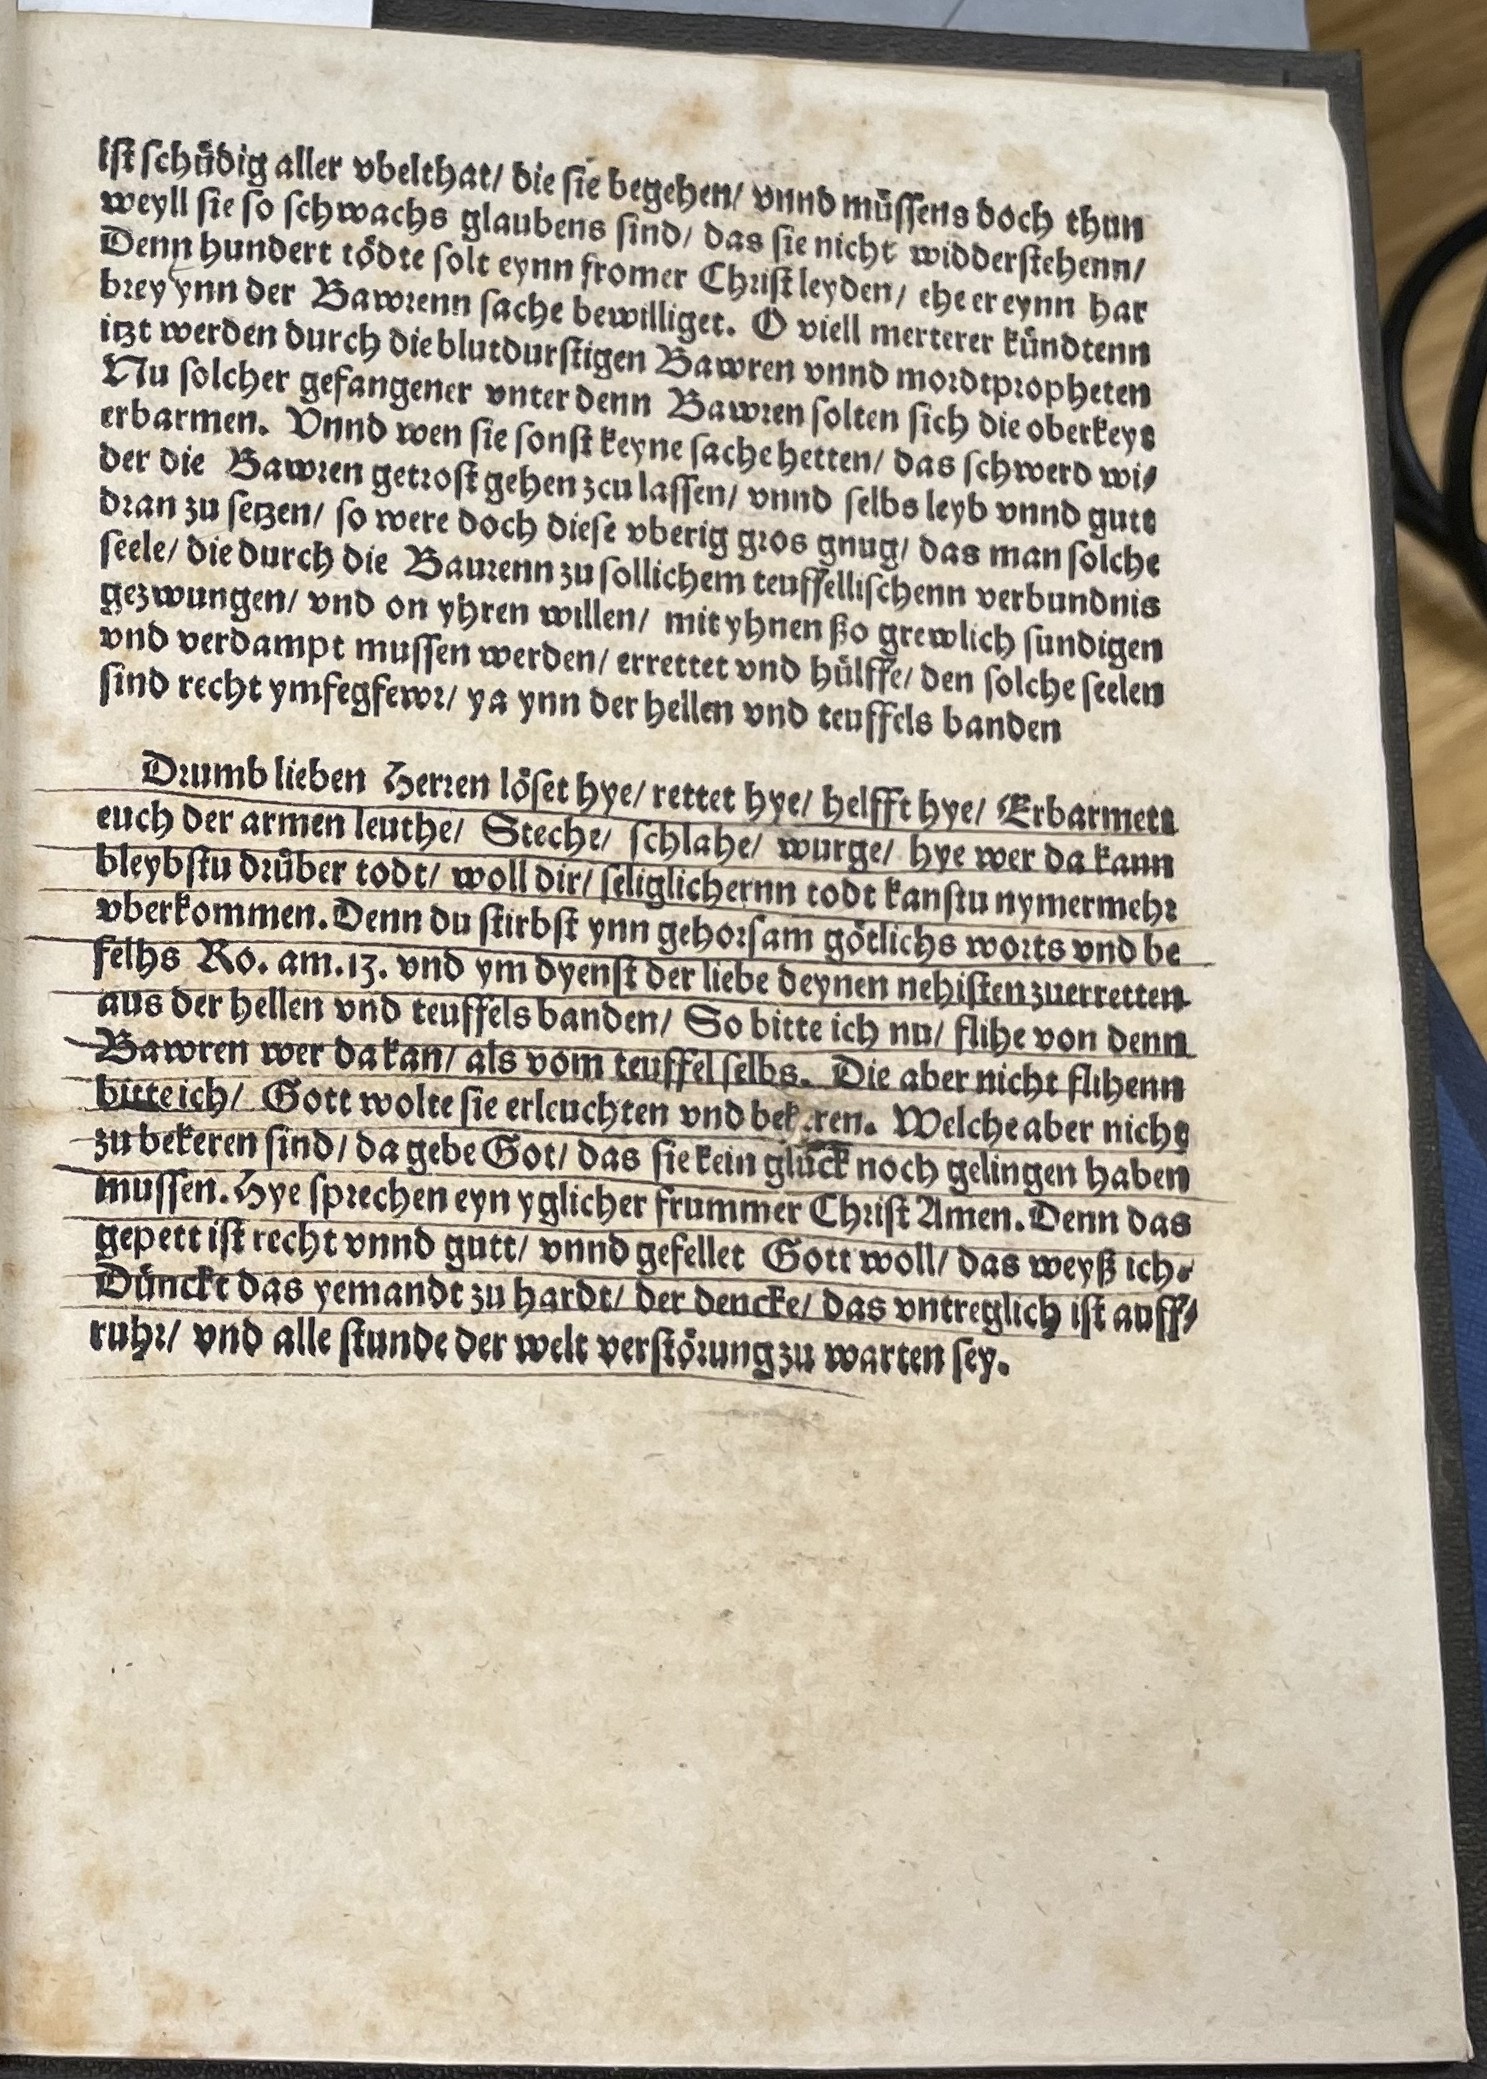 ist schüdig aller vbelthat/ die sie begehen/ vnnd müssens doch thun
weyll sie so schwachs glaubens sind/ das sie nicht widderstehenn/
Denn hundert tödte solt eynn fromer Christ leyden/ ehe er eynn har
brey ynn der Bawrenn sache bewilliget. O viell merterer kündtenn
itzt werden durch die blutdurstigen Bawren vnnd mordtpropheten
Nu solcher gefangener vnter denn Bawren solten sich die oberkeyt
erbarmen. Vnnd wen sie sonst keyne sache hetten/ das schwerd wi/
der die Bawren getrost gehen zcu lassen/ vnnd selbs leyb vnnd gutt
dran zu setzen/ so were doch diese vberig gros gnug/ das man solche
seele/ die durch die Baurenn zu sollichem teuffellischenn verbundnis
gezwungen/ vnd on yhren willen/ mit yhnen ßo grewlich sundigen
vnd verdampt mussen werden/ errettet vnd hülffe/ den solche seelen
sind recht ymfegfewr/ ya ynn der hellen vnd teuffels banden
Drumb lieben Herren löset hye/ rettet hye/ helfft hye/ Erbarmett
euch der armen leuthe/ Steche/ schlahe/ wurge/ hye wer da kann
bleybstu drüber todt/ woll dir/ seliglichernn todt kanstu nymermehr
vberkommen. Denn du stirbst ynn gehorsam götlichs worts vnd be
felhs Ro. am. 13. vnd ym dyenst der liebe deynen nehisten zuerretten
aus der hellen vnd teuffels banden/ So bitte ich nu/ flihe von denn
Bawren wer da kan/ als vom teuffel selbs. Die aber nicht flihenn
bitte ich/ Gott wolte sie erleuchten vnd bekeren. Welche aber nicht
zu bekeren sind/ da gebe Got/ das sie kein glück noch gelingen haben
mussen. Hye sprechen eyn yglicher frummer Christ Amen. Denn das
gepett ist recht vnnd gutt/ vnnd gefellet Gott woll/ das weyß ich.
Dünckt das yemandt zu hardt/ der dencke/ das vntreglich ist auff/
ruhr/ vnd alle stunde der welt verstörung zu warten sey.